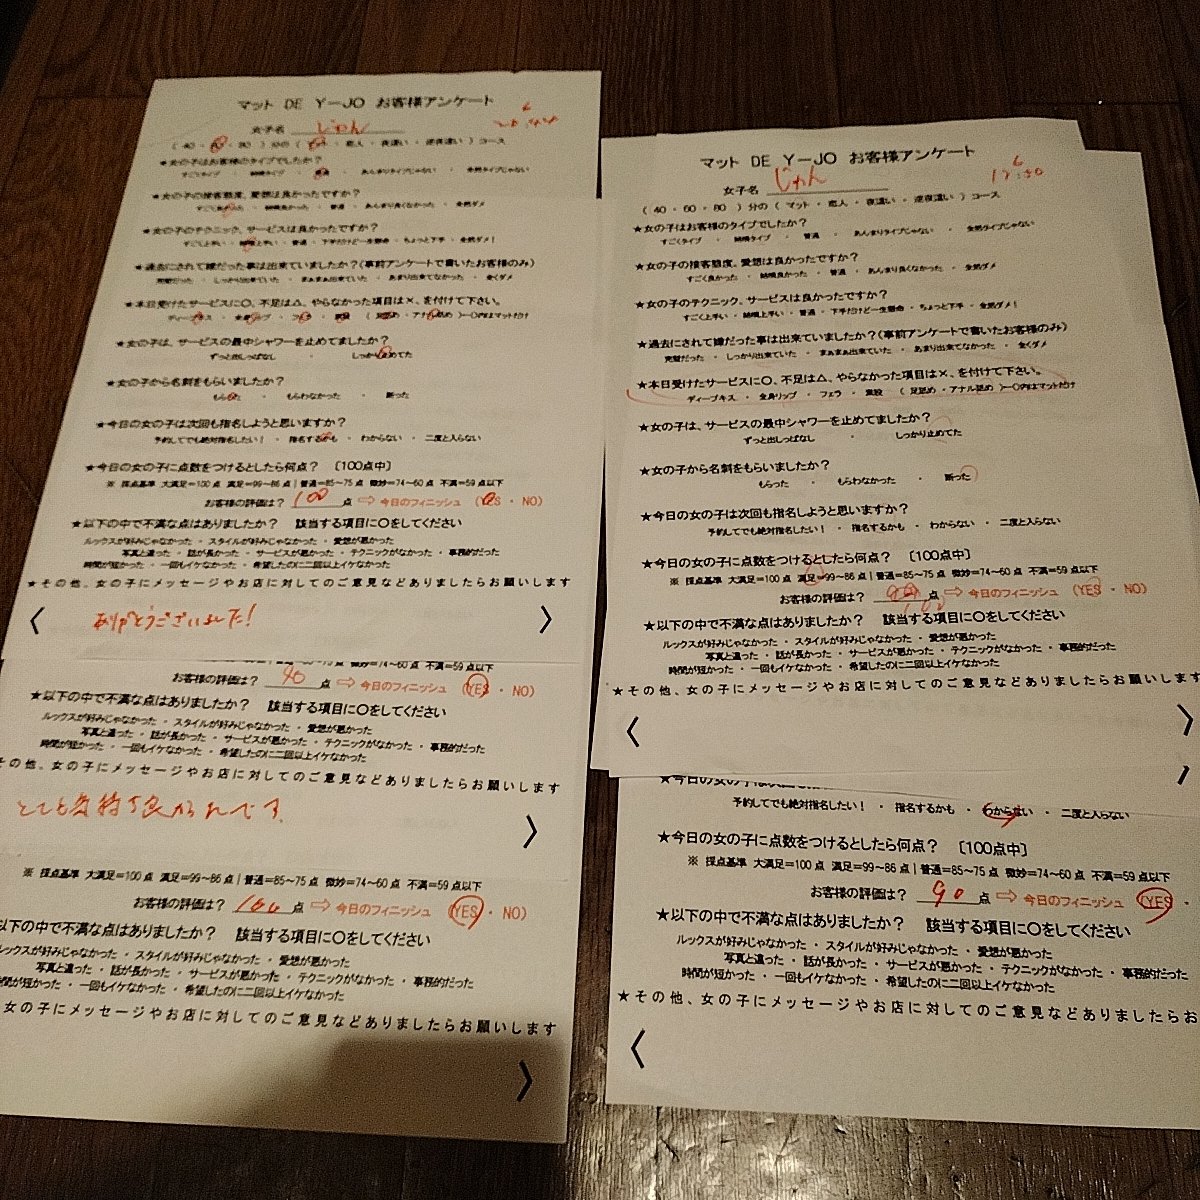 マット DE Y－JO お客様アンケート
女子名 じゅん
★女の子はお客様のタイプでしたか？
すごくタイプ ・ 結構タイプ ・ 普通 ・ あんまりタイプじゃない ・ 全然タイプじゃない
★女の子の接客態度、愛想は良かったですか？
すごく良かった ・ 結構良かった ・ 普通 ・ あんまり良くなかった ・ 全然ダメ
★女の子のテクニック、サービスは良かったですか？
すごく上手い ・ 結構上手い ・ 普通 ・ 下手だけど一生懸命 ・ ちょっと下手 ・ 全然ダメ！
★過去にされて嫌だった事は出来ていましたか？（事前アンケートで書いたお客様のみ）
完璧だった ・ しっかり出来ていた ・ まぁまぁ出来ていた ・ あまり出来てなかった ・ 全くダメ
★本日受けたサービスに〇、不足は△、やらなかった項目は×、を付けて下さい。
★女の子は、サービスの最中シャワーを止めてましたか？
ずっと出しっぱなし ・ しっかり止めてた
★女の子から名刺をもらいましたか？
もらった ・ もらわなかった ・ 断った
★今日の女の子は次回も指名しようと思いますか？
予約してでも絶対指名したい！ ・ 指名するかも ・ わからない ・ 二度と入らない
★今日の女の子に点数をつけるとしたら何点？ 〔100点中〕
※ 採点基準 大満足＝100点 満足＝99～86点｜普通＝85～75点 微妙＝74～60点 不満＝59点以下
お客様の評価は？ 100 点 ⇨ 今日のフィニッシュ （YES ・ NO）
★以下の中で不満な点はありましたか？ 該当する項目に〇をしてください
ルックスが好みじゃなかった ・ スタイルが好みじゃなかった ・ 愛想が悪かった
写真と違った ・ 話が長かった ・ サービスが悪かった ・ テクニックがなかった ・ 事務的だった
時間が短かった ・ 一回もイケなかった ・ 希望したのに二回以上イケなかった
★その他、女の子にメッセージやお店に対してのご意見などありましたらお願いします
〈 ありがとうございました！ 〉
お客様の評価は？ 点 ⇨ 今日のフィニッシュ （YES ・ NO）
★以下の中で不満な点はありましたか？ 該当する項目に〇をしてください
ルックスが好みじゃなかった ・ スタイルが好みじゃなかった ・ 愛想が悪かった
写真と違った ・ 話が長かった ・ サービスが悪かった ・ テクニックがなかった ・ 事務的だった
時間が短かった ・ 一回もイケなかった ・ 希望したのに二回以上イケなかった
その他、女の子にメッセージやお店に対してのご意見などありましたらお願いします
とても気持ち良かったです 〉
※ 採点基準 大満足＝100点 満足＝99～86点｜普通＝85～75点 微妙＝74～60点 不満＝59点以下
お客様の評価は？ 100 点 ⇨ 今日のフィニッシュ （YES ・ NO）
以下の中で不満な点はありましたか？ 該当する項目に〇をしてください
ルックスが好みじゃなかった ・ スタイルが好みじゃなかった ・ 愛想が悪かった
写真と違った ・ 話が長かった ・ サービスが悪かった ・ テクニックがなかった ・ 事務的だった
時間が短かった ・ 一回もイケなかった ・ 希望したのに二回以上イケなかった
女の子にメッセージやお店に対してのご意見などありましたらお願いします
〉
マット DE Y－JO お客様アンケート
女子名 じゅん
（ 40 ・ 60 ・ 80 ）分の（ マット ・ 恋人 ・ 夜這い ・ 逆夜這い ）コース
★女の子はお客様のタイプでしたか？
すごくタイプ ・ 結構タイプ ・ 普通 ・ あんまりタイプじゃない ・ 全然タイプじゃない
★女の子の接客態度、愛想は良かったですか？
すごく良かった ・ 結構良かった ・ 普通 ・ あんまり良くなかった ・ 全然ダメ
★女の子のテクニック、サービスは良かったですか？
すごく上手い ・ 結構上手い ・ 普通 ・ 下手だけど一生懸命 ・ ちょっと下手 ・ 全然ダメ！
★過去にされて嫌だった事は出来ていましたか？（事前アンケートで書いたお客様のみ）
完璧だった ・ しっかり出来ていた ・ まぁまぁ出来ていた ・ あまり出来てなかった ・ 全くダメ
★本日受けたサービスに〇、不足は△、やらなかった項目は×、を付けて下さい。
ディープキス ・ 全身リップ ・ フェラ ・ 素股 （ 足舐め ・ アナル舐め ）←〇内はマットだけ
★女の子は、サービスの最中シャワーを止めてましたか？
ずっと出しっぱなし ・ しっかり止めてた
★女の子から名刺をもらいましたか？
もらった ・ もらわなかった ・ 断った
★今日の女の子は次回も指名しようと思いますか？
予約してでも絶対指名したい！ ・ 指名するかも ・ わからない ・ 二度と入らない
★今日の女の子に点数をつけるとしたら何点？ 〔100点中〕
※ 採点基準 大満足＝100点 満足＝99～86点｜普通＝85～75点 微妙＝74～60点 不満＝59点以下
お客様の評価は？ 100 点 ⇨ 今日のフィニッシュ （YES ・ NO）
★以下の中で不満な点はありましたか？ 該当する項目に〇をしてください
ルックスが好みじゃなかった ・ スタイルが好みじゃなかった ・ 愛想が悪かった
写真と違った ・ 話が長かった ・ サービスが悪かった ・ テクニックがなかった ・ 事務的だった
時間が短かった ・ 一回もイケなかった ・ 希望したのに二回以上イケなかった
★その他、女の子にメッセージやお店に対してのご意見などありましたらお願いします
〈 〉
予約してでも絶対指名したい！ ・ 指名するかも ・ わからない ・ 二度と入らない
★今日の女の子に点数をつけるとしたら何点？ 〔100点中〕
※ 採点基準 大満足＝100点 満足＝99～86点｜普通＝85～75点 微妙＝74～60点 不満＝59点以下
お客様の評価は？ 90 点 ⇨ 今日のフィニッシュ （YES ・
★以下の中で不満な点はありましたか？ 該当する項目に〇をしてください
ルックスが好みじゃなかった ・ スタイルが好みじゃなかった ・ 愛想が悪かった
写真と違った ・ 話が長かった ・ サービスが悪かった ・ テクニックがなかった ・ 事務的だった
時間が短かった ・ 一回もイケなかった ・ 希望したのに二回以上イケなかった
★その他、女の子にメッセージやお店に対してのご意見などありましたらお
〈